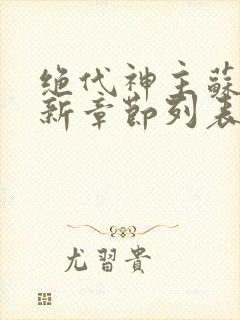 绝代神主蘇
新章節列表
尤習貴